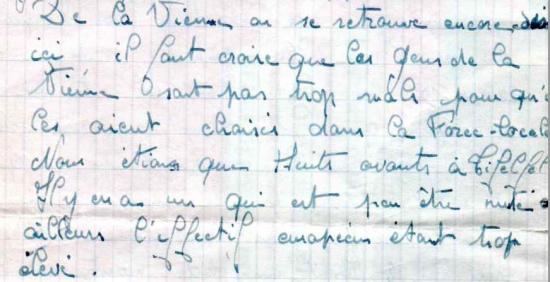 De la Vienne on se retrouve encore
ici il faut croire que les gens de la
Vienne sont pas trop mals pour qu'
les aient choisis dans la Force-Locale
Nous étions que Huits avants à
Il y en a un qui est peu être muté
ailleurs l'effectif européen étant trop
élevé.